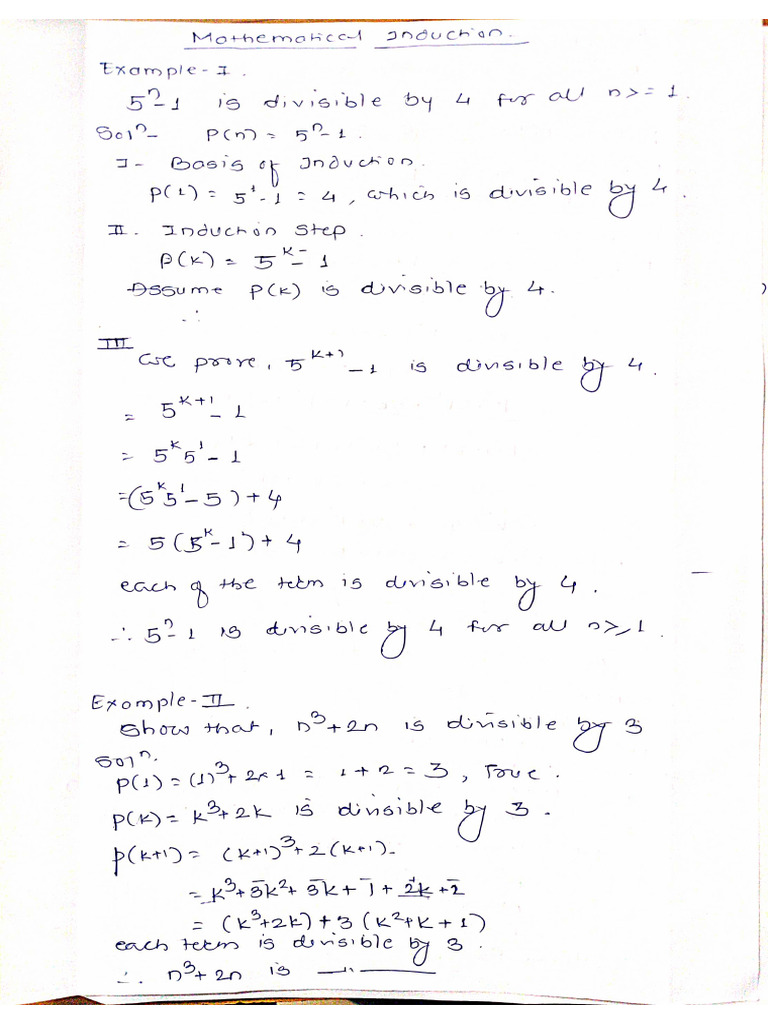 Mathematical Induction.
Example-I.
5ⁿ-1 is divisible by 4 for all n>=1.
Solⁿ- P(n) = 5ⁿ-1.
I- Basis of Induction.
P(1) = 5¹-1 = 4, which is divisible by 4.
II. Induction Step.
P(k) = 5ᵏ-1
Assume P(k) is divisible by 4.
∴
III
We prove, 5ᵏ⁺¹-1 is divisible by 4.
= 5ᵏ⁺¹-1
= 5ᵏ5¹-1
=(5ᵏ5¹-5)+4
= 5(5ᵏ-1)+4
each of the term is divisible by 4.
∴ 5ⁿ-1 is divisible by 4 for all n≥1.
Example-II.
Show that, n³+2n is divisible by 3
Solⁿ.
P(1)=(1)³+2×1 = 1+2=3, True.
P(k)= k³+2k is divisible by 3.
P(k+1)= (k+1)³+2(k+1).
= k³+3k²+3k+1+2k+2
= (k³+2k)+3(k²+k+1)
each term is divisible by 3.
∴ n³+2n is —〃—